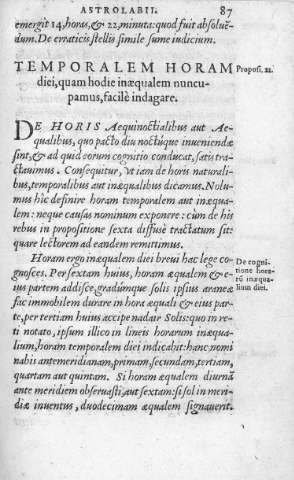 ASTROLABII. 87
emergit 14, horas, & 22, minuta: quod fuit absoluẽ-
dum. De erraticis stellis simile sume iudicium.
TEMPORALEM HORAM
Proposi. 22.
diei, quam hodie inæqualem nuncu-
pamus, facilè indagare.
DE HORIS Aequinoctialibus aut Ae-
qualibus, quo pacto diu noctuque inueniendæ
sint, & ad quid eorum cognitio conducat, satis tra-
ctauimus. Consequitur, vt iam de horis naturali-
bus, temporalibus aut inæqualibus dicamus. Nolu-
mus hîc definire horam temporalem aut inæqua-
lem: neque causas nominum exponere: cùm de his
rebus in propositione sexta diffusè tractatum sit:
quare lectorem ad eandem remittimus.
Horam ergo inæqualem diei breui hac lege co-
De cogni-
gnosces. Per sextam huius, horam æqualem & e-
tione hora-
ius partem addisce, gradúmque solis ipsius araneæ
rũ inæqua-
fac immobilem durare in hora æquali & eius par-
lium diei.
te, per tertiam huius accipe nadair Solis: quo in re-
ti notato, ipsum illico in lineis horarum inæqua-
lium, horam temporalem diei indicabit: hanc nomi
nabis antemeridianam, primam, secundam, tertiam,
quartam aut quintam. Si horam æqualem diurnã
ante meridiem obseruasti, aut sextam: si sol in meri-
die inuentus, duodecimam æqualem signauerit.